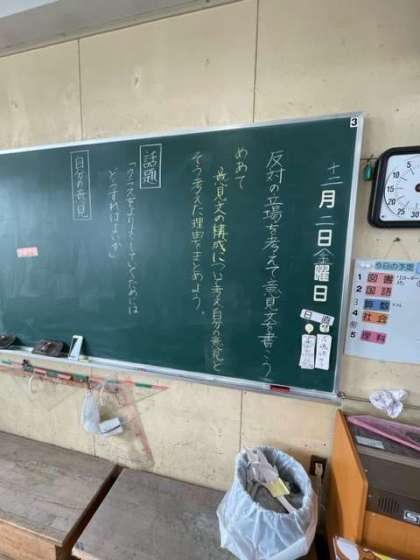 十二月二日金曜日
日直
反対の立場を考えて意見文を書こう
めあて
意見文の構成について考え、自分の意見と
そう考えた理由をまとめよう。
話題
「クラスをよりよくしていくためには
どうすればよいか」
自分の意見
3
今日の予想
1 図書
2 国語
3 算数
4 社会
5 理科